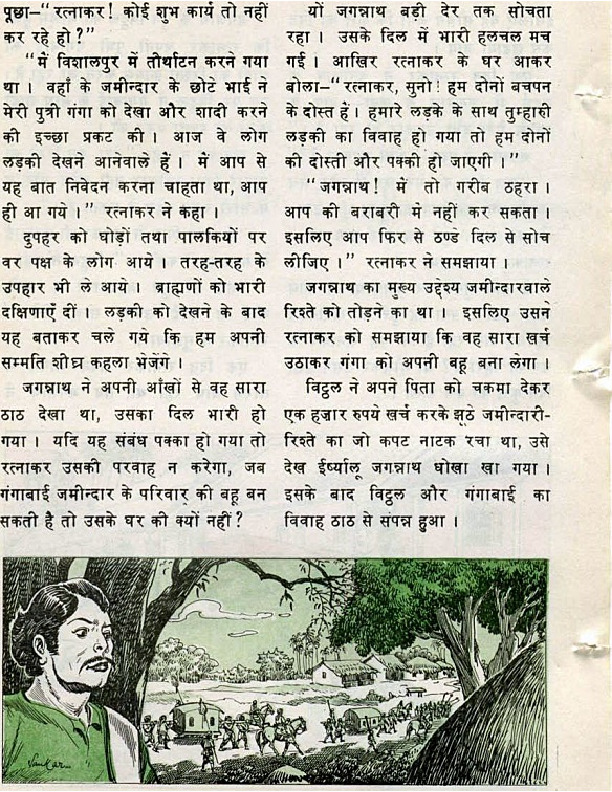 पूछा–“रत्नाकर! कोई शुभ कार्य तो नहीं
कर रहे हो?”
“मैं विशालपुर में तीर्थाटन करने गया
था। वहाँ के जमीन्दार के छोटे भाई ने
मेरी पुत्री गंगा को देखा और शादी करने
की इच्छा प्रकट की। आज वे लोग
लड़की देखने आनेवाले हैं। मैं आप से
यह बात निवेदन करना चाहता था, आप
ही आ गये।” रत्नाकर ने कहा।
दुपहर को घोड़ों तथा पालकियों पर
वर पक्ष के लोग आये। तरह-तरह के
उपहार भी ले आये। ब्राह्मणों को भारी
दक्षिणाएँ दीं। लड़की को देखने के बाद
यह बताकर चले गये कि हम अपनी
सम्मति शीघ्र कहला भेजेंगे।
जगन्नाथ ने अपनी आँखों से वह सारा
ठाठ देखा था, उसका दिल भारी हो
गया। यदि यह संबंध पक्का हो गया तो
रत्नाकर उसकी परवाह न करेगा, जब
गंगाबाई जमीन्दार के परिवार की बहू बन
सकती है तो उसके घर की क्यों नहीं?
यों जगन्नाथ बड़ी देर तक सोचता
रहा। उसके दिल में भारी हलचल मच
गई। आखिर रत्नाकर के घर आकर
बोला–“रत्नाकर, सुनो! हम दोनों बचपन
के दोस्त हैं। हमारे लड़के के साथ तुम्हारी
लड़की का विवाह हो गया तो हम दोनों
की दोस्ती और पक्की हो जाएगी।”
“जगन्नाथ! में तो गरीब ठहरा।
आप की बराबरी में नहीं कर सकता।
इसलिए आप फिर से ठण्डे दिल से सोच
लीजिए।” रत्नाकर ने समझाया।
जगन्नाथ का मुख्य उद्देश्य जमीन्दारवाले
रिश्ते को तोड़ने का था। इसलिए उसने
रत्नाकर को समझाया कि वह सारा खर्च
उठाकर गंगा को अपनी बहू बना लेगा।
विट्ठल ने अपने पिता को चकमा देकर
एक हज़ार रुपये खर्च करके झूठे जमींदारी-
रिश्ते का जो कपट नाटक रचा था, उसे
देख ईर्ष्यालू जगन्नाथ धोखा खा गया।
इसके बाद विट्ठल और गंगाबाई का
विवाह ठाठ से संपन्न हुआ।
Sankar